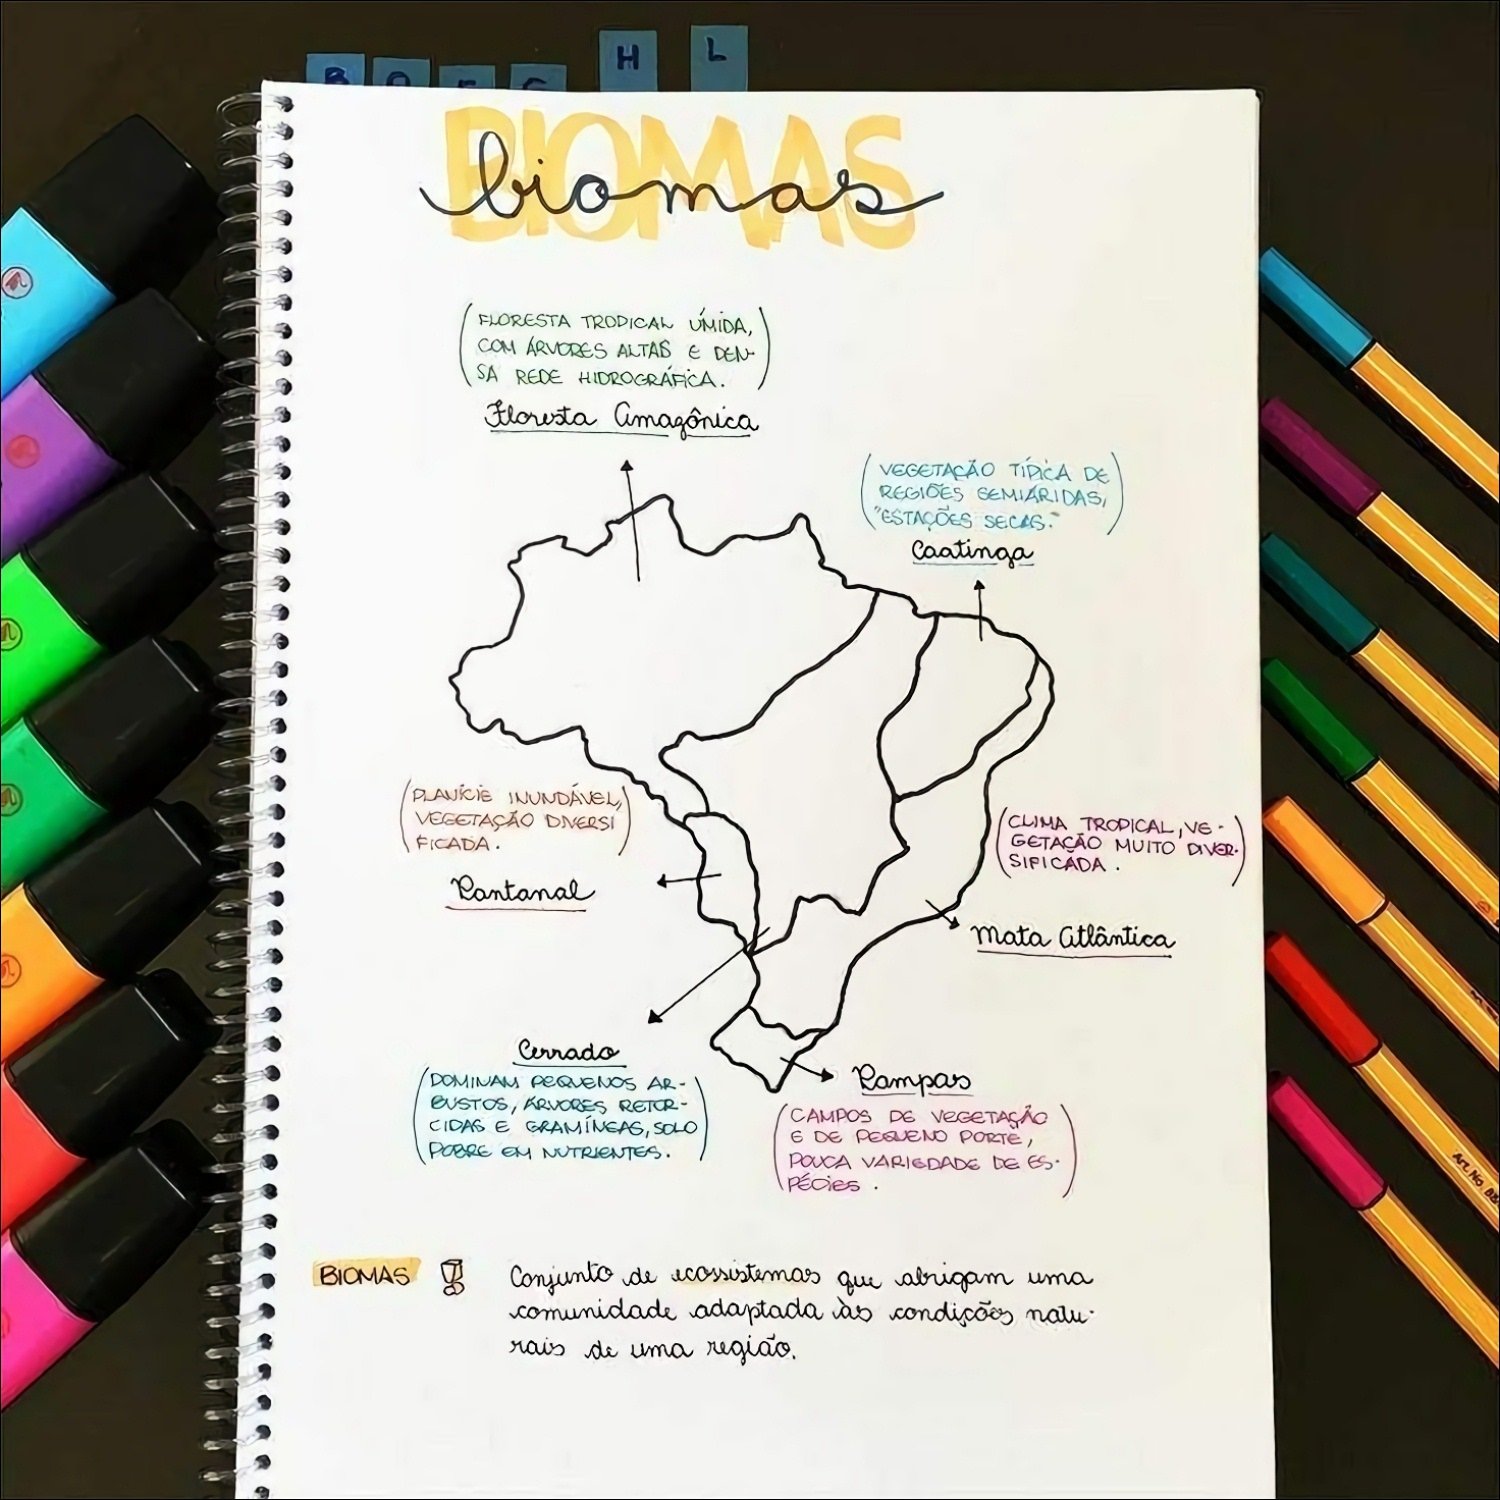 H L
BIOMAS
biomas
(FLORESTA TROPICAL ÚMIDA,
COM ÁRVORES ALTAS E DEN-
SA REDE HIDROGRÁFICA.)
Floresta Amazônica
(VEGETAÇÃO TÍPICA DE
REGIÕES SEMIÁRIDAS,
"ESTAÇÕES SECAS.")
Caatinga
(PLANÍCIE INUNDÁVEL,
VEGETAÇÃO DIVERSI
FICADA.)
Pantanal
(CLIMA TROPICAL, VE-
GETAÇÃO MUITO DIVER-
SIFICADA.)
Mata Atlântica
Cerrado
(DOMINAM PEQUENOS AR-
BUSTOS, ÁRVORES RETOR-
CIDAS E GRAMÍNEAS, SOLO
POBRE EM NUTRIENTES.)
Pampas
(CAMPOS DE VEGETAÇÃO
E DE PEQUENO PORTE,
POUCA VARIEDADE DE ES-
PÉCIES.)
BIOMAS ! Conjunto de ecossistemas que abrigam uma
comunidade adaptada às condições natu-
rais de uma região.
Art. No. 88